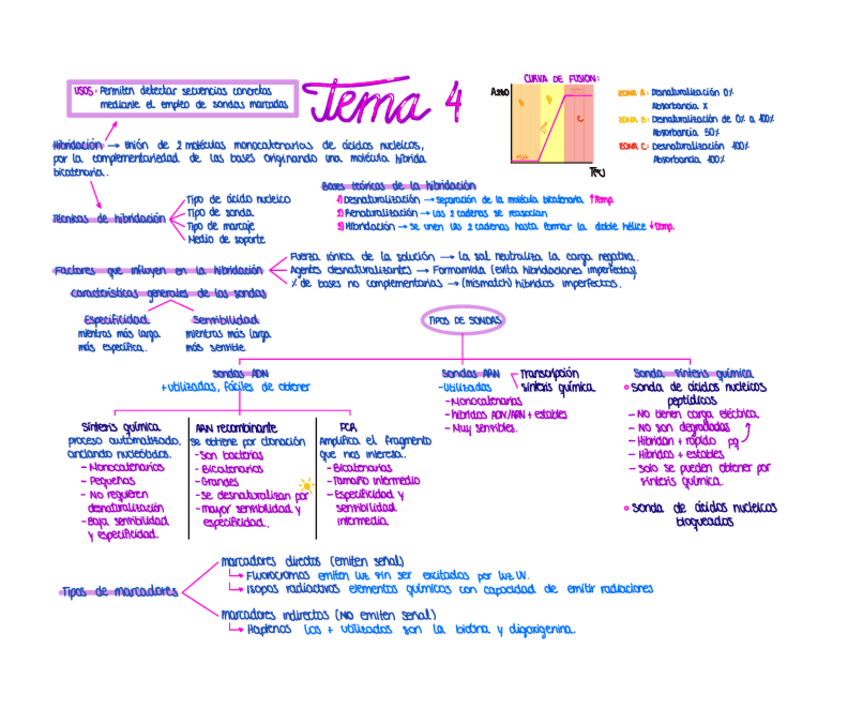 USOS: Permiten detectar secuencias concretas
mediante el empleo de sondas marcadas
Tema 4
CURVA DE FUSIÓN:
A260
ZONA A: Desnaturalización 0%
Absorbancia x
ZONA B: Desnaturalización de 0% a 100%
Absorbancia 50%
ZONA C: Desnaturalización 100%
Absorbancia 100%
Hibridación → unión de 2 moléculas monocatenarias de ácidos nucleicos,
por la complementariedad de las bases originando una molécula híbrida
bicatenaria.
Técnicas de hibridación
Tipo de ácido nucleico
Tipo de sonda
Tipo de marcaje
Medio de soporte
Bases teóricas de la hibridación
1) Desnaturalización → separación de la molécula bicatenaria ↑Temp
2) Renaturalización → las 2 cadenas se reasocian
3) Hibridación → se unen las 2 cadenas hasta formar la doble hélice ↓temp.
Factores que influyen en la hibridación
Fuerza iónica de la solución → la sal neutraliza la carga negativa.
Agentes desnaturalizantes → Formamida (evita hibridaciones imperfectas)
% de bases no complementarias → (mismatch) híbridos imperfectos.
características generales de las sondas
Especificidad
mientras más larga
más específica.
Sensibilidad
mientras más larga
más sensible
TIPOS DE SONDAS
Sondas ADN
+ utilizadas, fáciles de obtener
Síntesis química
proceso automatizado,
anclando nucleótidos.
- Monocatenarios
- Pequeñas
- No requieren
desnaturalización
- Baja sensibilidad
y especificidad.
ARN recombinante
se obtiene por clonación
- Son bacterias
- Bicatenarios
- Grandes
- se desnaturalizan por
- mayor sensibilidad y
especificidad.
PCR
Amplifica el fragmento
que nos interesa.
- Bicatenarios
- Tamaño intermedio
- Especificidad y
sensibilidad
intermedia.
Sondas ARN
- utilizadas
Transcripción
síntesis química
- Monocatenarias
- híbridos ADN/ARN + estables
- Muy sensibles.
Sonda síntesis química
• sonda de ácidos nucleicos
peptídicos
- No tienen carga eléctrica
- No son degradadas
- Hibridan + rápido pq
- Híbridos + estables
- Solo se pueden obtener por
síntesis química.
• sonda de ácidos nucleicos
bloqueados
Tipos de marcadores
marcadores directos (emiten señal)
↳ Fluorocromos emiten luz sin ser excitados por luz UV.
↳ Isopos radiactivos elementos químicos con capacidad de emitir radiaciones
marcadores indirectos (NO emiten señal)
↳ Haptenos los + utilizados son la biotina y digoxigenina.